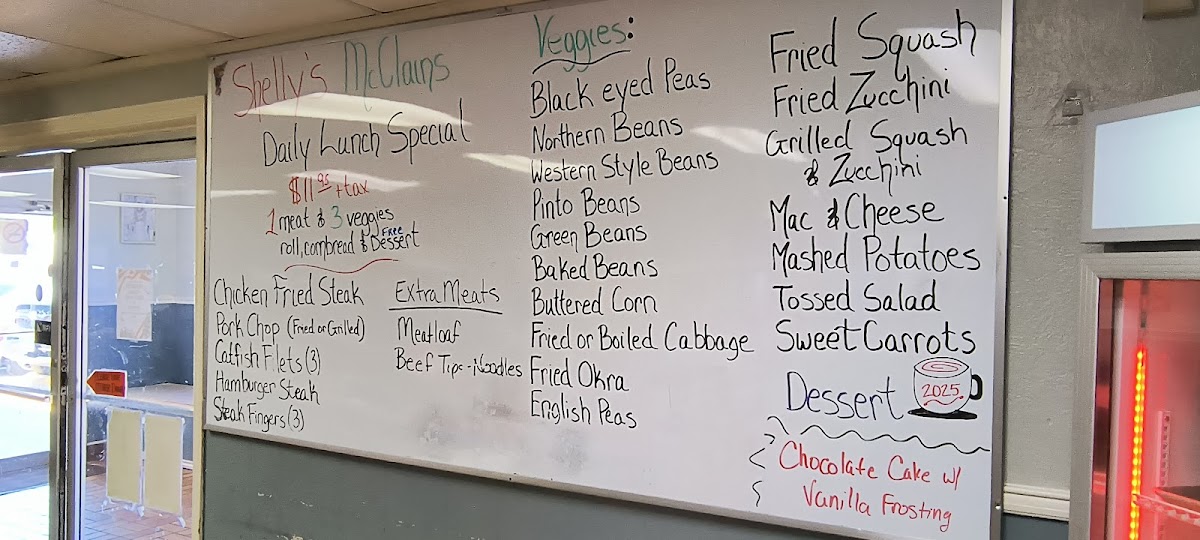 Shelly's McClains
Daily Lunch Special
$11.95 + tax
1 meat & 3 veggies
roll, cornbread & Free Dessert
Chicken Fried Steak
Pork Chop (Fried or Grilled)
Catfish Filets (3)
Hamburger Steak
Steak Fingers (3)
Extra Meats
Meatloaf
Beef Tips - Noodles
Veggies:
Black eyed Peas
Northern Beans
Western Style Beans
Pinto Beans
Green Beans
Baked Beans
Buttered Corn
Fried or Boiled Cabbage
Fried Okra
English Peas
Fried Squash
Fried Zucchini
Grilled Squash
& Zucchini
Mac & Cheese
Mashed Potatoes
Tossed Salad
Sweet Carrots
Dessert
2025
Chocolate Cake w/
Vanilla Frosting